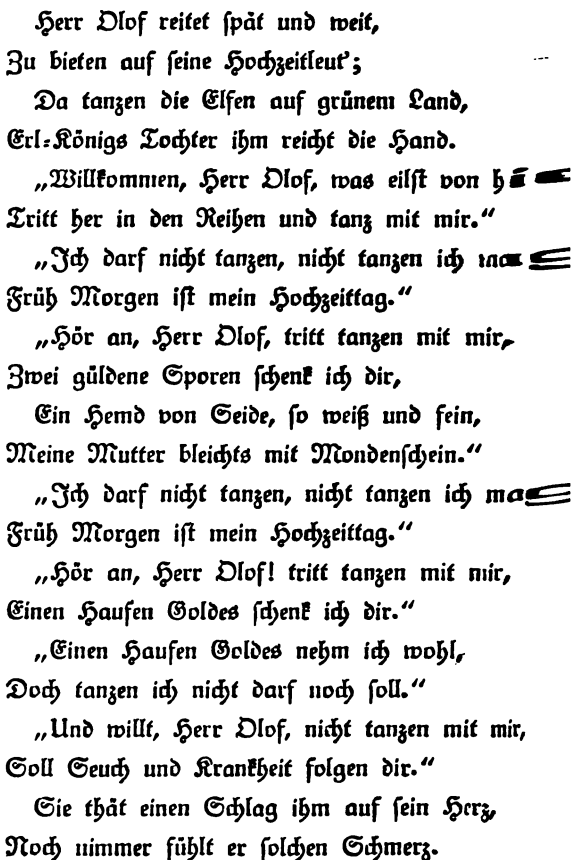 Herr Olof reitet spät und weit,
Zu bieten auf seine Hochzeitleut';
Da tanzen die Elfen auf grünem Land,
Erl-Königs Tochter ihm reicht die Hand.
„Willkommen, Herr Olof, was eilst von
Tritt her in den Reihen und tanz mit mir.“
„Ich darf nicht tanzen, nicht tanzen ich
Früh Morgen ist mein Hochzeittag.“
„Hör an, Herr Olof, tritt tanzen mit mir,
Zwei güldene Sporen schenk ich dir,
Ein Hemd von Seide, so weiß und fein,
Meine Mutter bleichts mit Mondenschein.“
„Ich darf nicht tanzen, nicht tanzen ich
Früh Morgen ist mein Hochzeittag.“
„Hör an, Herr Olof! tritt tanzen mit mir,
Einen Haufen Goldes schenk ich dir.“
„Einen Haufen Goldes nehm ich wohl,
Doch tanzen ich nicht darf noch soll.“
„Und willt, Herr Olof, nicht tanzen mit mir,
Soll Seuch und Krankheit folgen dir.“
Sie thät einen Schlag ihm auf sein Herz,
Noch nimmer fühlt er solchen Schmerz.